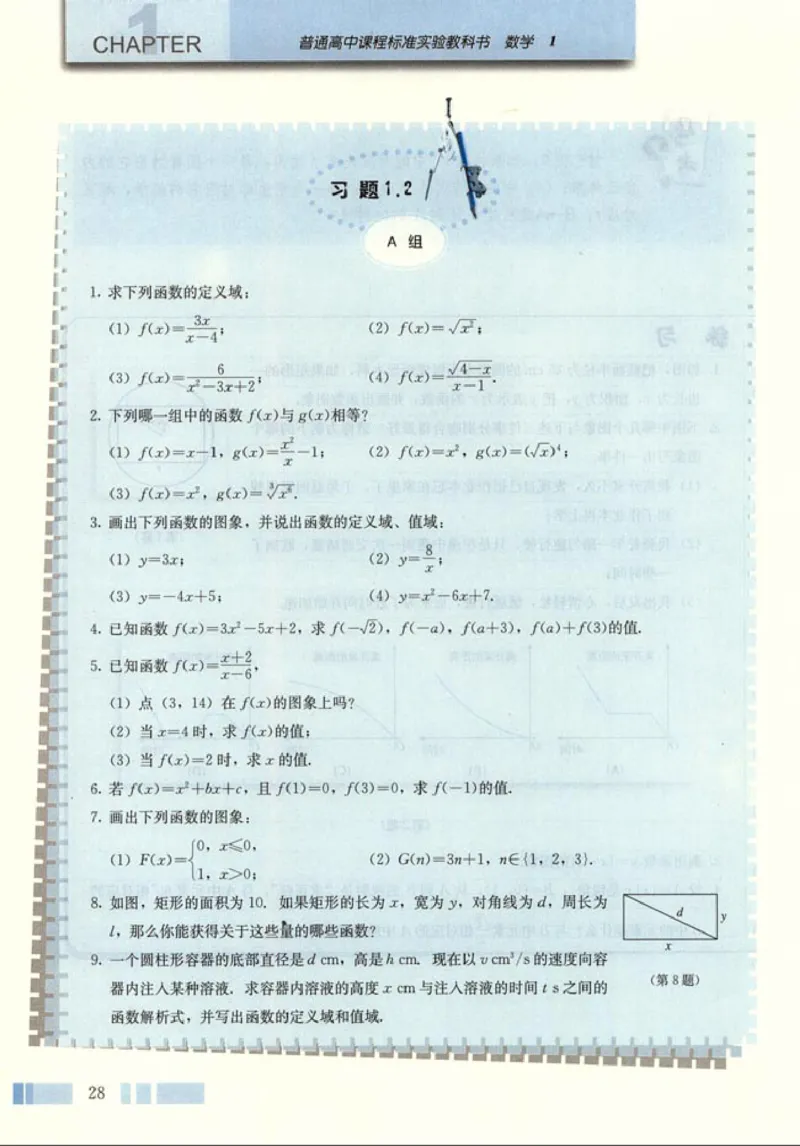 1
CHAPTER
普通高中课程标准实验教科书 数学 1
习题1.2
A 组
1. 求下列函数的定义域：
(1) f(x)=3x/(x-4)；
(2) f(x)=√(x²)；
(3) f(x)=6/(x²-3x+2)；
(4) f(x)=√(4-x)/(x-1).
2. 下列哪一组中的函数 f(x)与 g(x)相等?
(1) f(x)=x-1，g(x)=x²/x-1；
(2) f(x)=x²，g(x)=(√x)⁴；
(3) f(x)=x²，g(x)=∛(x⁶).
3. 画出下列函数的图象，并说出函数的定义域、值域：
(1) y=3x；
(2) y=8/x；
(3) y=-4x+5；
(4) y=x²-6x+7.
4. 已知函数 f(x)=3x²-5x+2，求 f(-√2)，f(-a)，f(a+3)，f(a)+f(3)的值.
5. 已知函数 f(x)=(x+2)/(x-6)，
(1) 点 (3，14) 在 f(x)的图象上吗?
(2) 当 x=4 时，求 f(x)的值；
(3) 当 f(x)=2 时，求 x 的值.
6. 若 f(x)=x²+bx+c，且 f(1)=0，f(3)=0，求 f(-1)的值.
7. 画出下列函数的图象：
(1) F(x)={0，x≤0，
1，x>0；
(2) G(n)=3n+1，n∈{1，2，3}.
8. 如图，矩形的面积为 10. 如果矩形的长为 x，宽为 y，对角线为 d，周长为
l，那么你能获得关于这些量的哪些函数?
d
y
x
(第 8 题)
9. 一个圆柱形容器的底部直径是 d cm，高是 h cm. 现在以 v cm³/s 的速度向容
器内注入某种溶液. 求容器内溶液的高度 x cm 与注入溶液的时间 t s 之间的
函数解析式，并写出函数的定义域和值域.
28